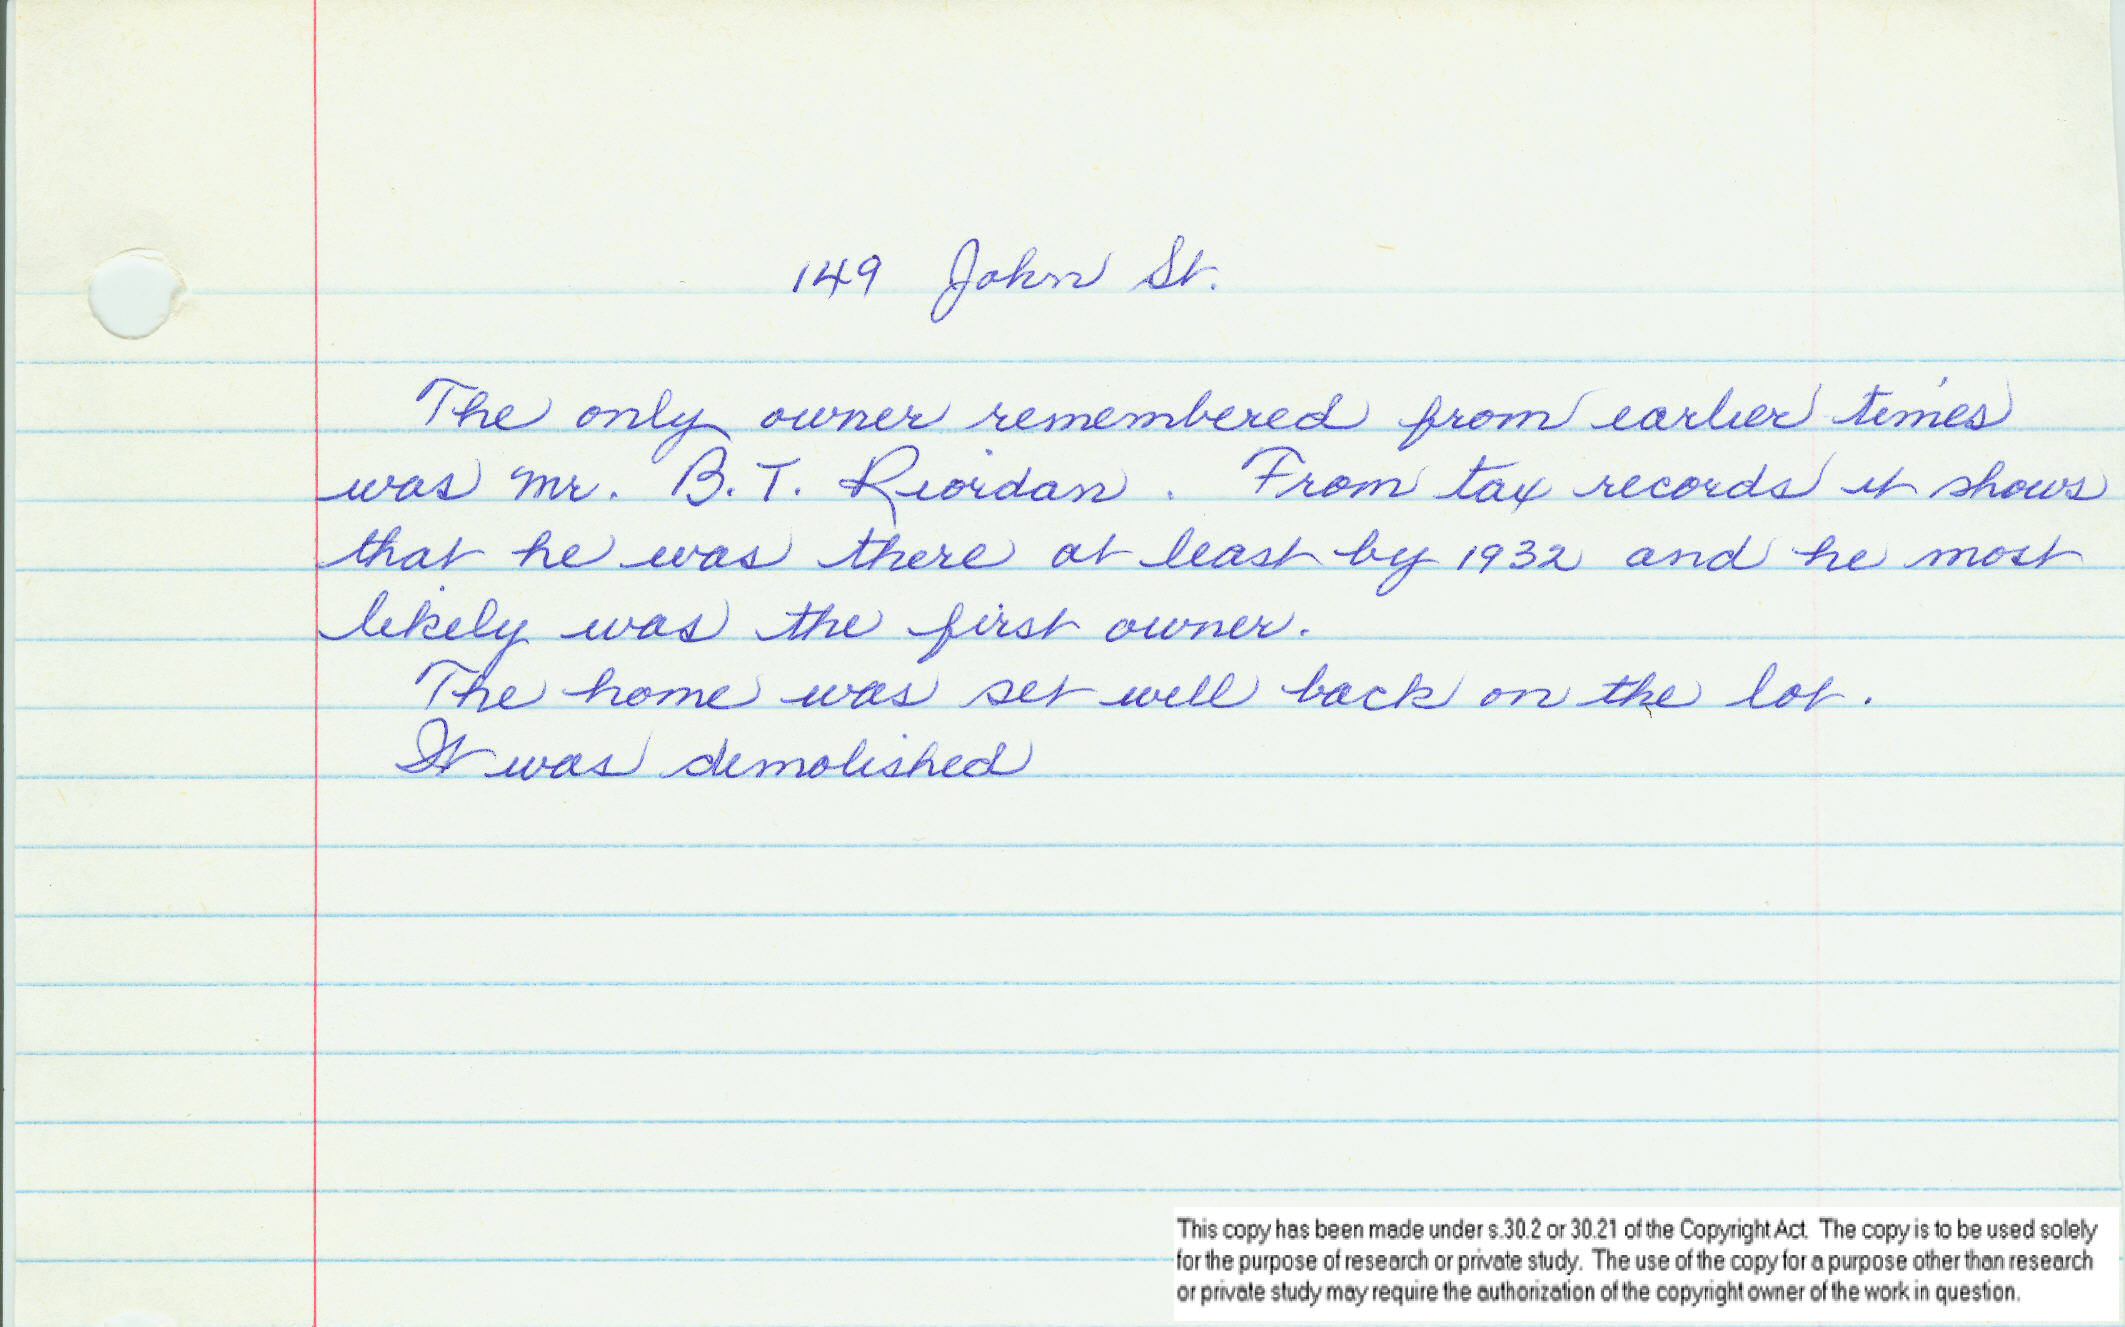 149 John St.
The only owner remembered from earlier times
was Mr. B. T. Riordan. From tax records it shows
that he was there at least by 1932 and he most
likely was the first owner.
The home was set well back on the lot.
It was demolished
This copy has been made under s.30.2 or 30.21 of the Copyright Act. The copy is to be used solely
for the purpose of research or private study. The use of the copy for a purpose other than research
or private study may require the authorization of the copyright owner of the work in question.